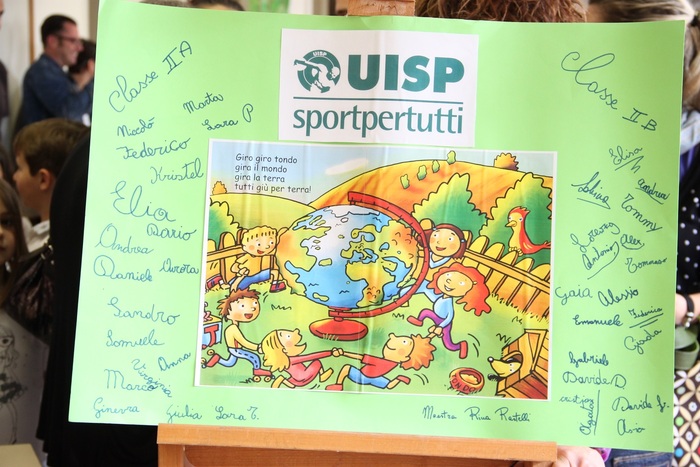 Classe II A
Marta
Lara P
Nicolò
Federico
Kristel
Elia
Dario
Andrea
Daniele Aurora
Sandro
Samuele
Anna
Virginia
Marco
Ginevra Giulia Lara T.
UISP
UISP
sportpertutti
Giro giro tondo
gira il mondo
gira la terra
tutti giù per terra!
Maestra Rina Rastelli
Classe II B
Elisa
Andrea
Tommy
Lorenzo
Alex
Antonio
Tommaso
Gaia Alessio
Emanuele Federica
Giada
Gabriele
Davide D
cristian
Davide
Asia